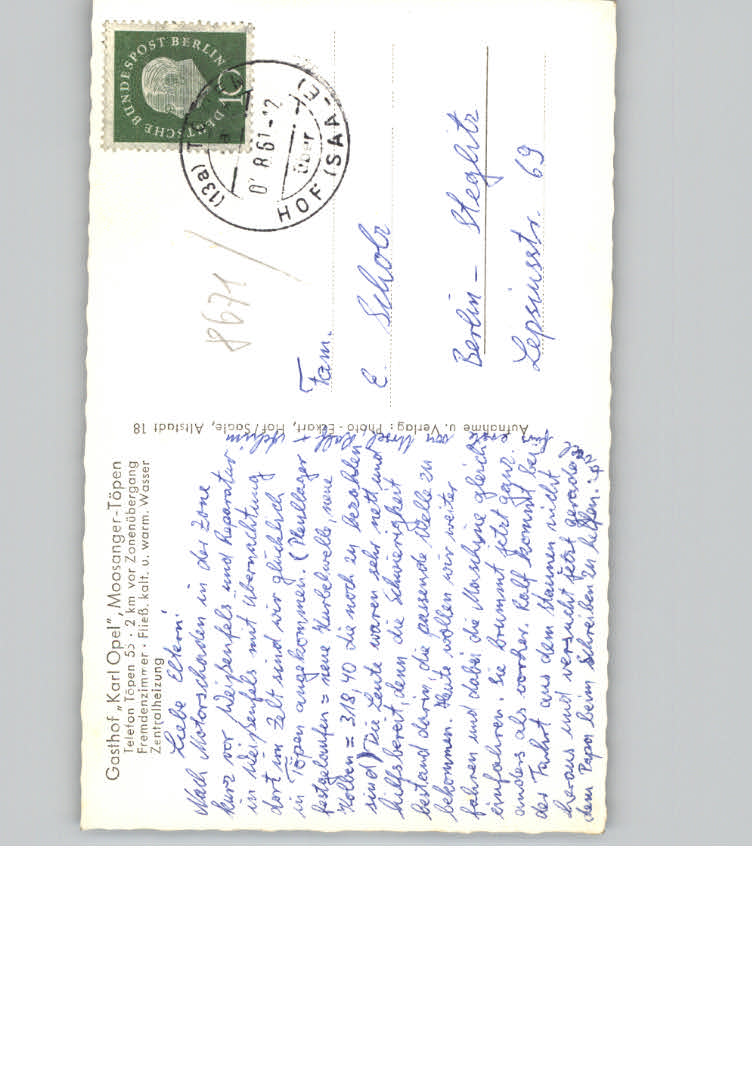 Gasthof „Karl Opel", Moosanger-Töpen
Telefon Töpen 55 · 2 km vor Zonenübergang
Fremdenzimmer · Fließ. kalt. u. warm. Wasser
Zentralheizung
Liebe Eltern!
Nach Motorschaden in der Zone
kurz vor Weißenfels und Reparatur
in Weißenfels mit Übernachtung
dort im Zelt sind wir glücklich
in Töpen angekommen. (Pleullager
festgelaufen = neue Kurbelwelle, neue
Kolben = 318,40 die noch zu bezahlen
sind) Die Leute waren sehr nett und
hilfsbereit, denn die Schwierigkeit
bestand darin, die passende Welle zu
bekommen. Heute wollen wir weiter
fahren und dabei die Maschine gleich
einfahren. Sie brummt jetzt ganz
anders als vorher. Ralf kommt bei
der Fahrt aus dem Staunen nicht
heraus und versucht jetzt gerade
dem Papa beim Schreiben zu helfen.
von Ursel, Ralf +
Aufnahme u. Verlag: Photo-Eckart, Hof/Saale, Altstadt 18
DEUTSCHE BUNDESPOST BERLIN
10
(13a)
8.61-12
über
HOF (SAALE)
8671
Fam.
E. Scholz
Berlin - Steglitz
Lepsiusstr. 69